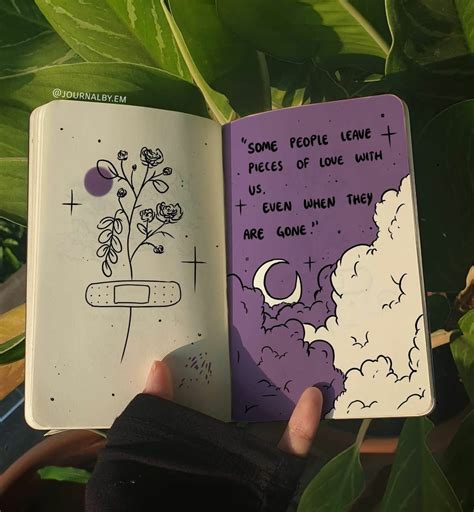 @JOURNALBY.EM
"SOME PEOPLE LEAVE
PIECES OF LOVE WITH
US,
EVEN WHEN THEY
ARE GONE."